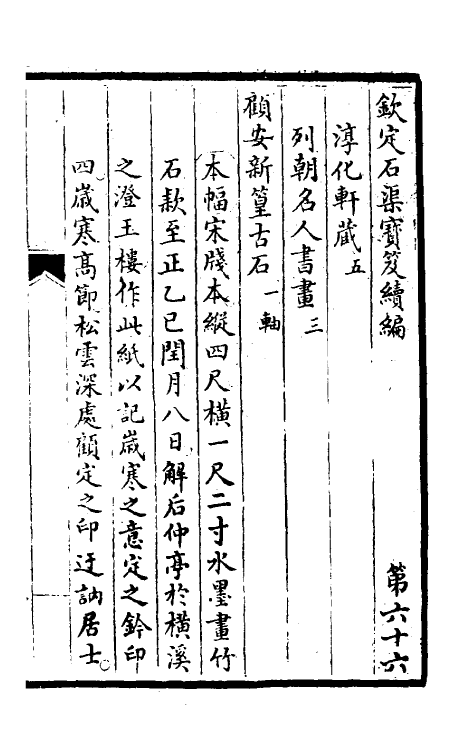 欽定石渠寶笈續編 第六十六
淳化軒藏五
列朝名人書畫三
顧安新篁古石一軸
本幅宋牋本縱四尺橫一尺二寸水墨畫竹
石款至正乙巳閏月八日解后仲亭於橫溪
之澄玉樓作此紙以記歲寒之意定之鈐印
四歲寒高節松雲深處顧定之印迂訥居士